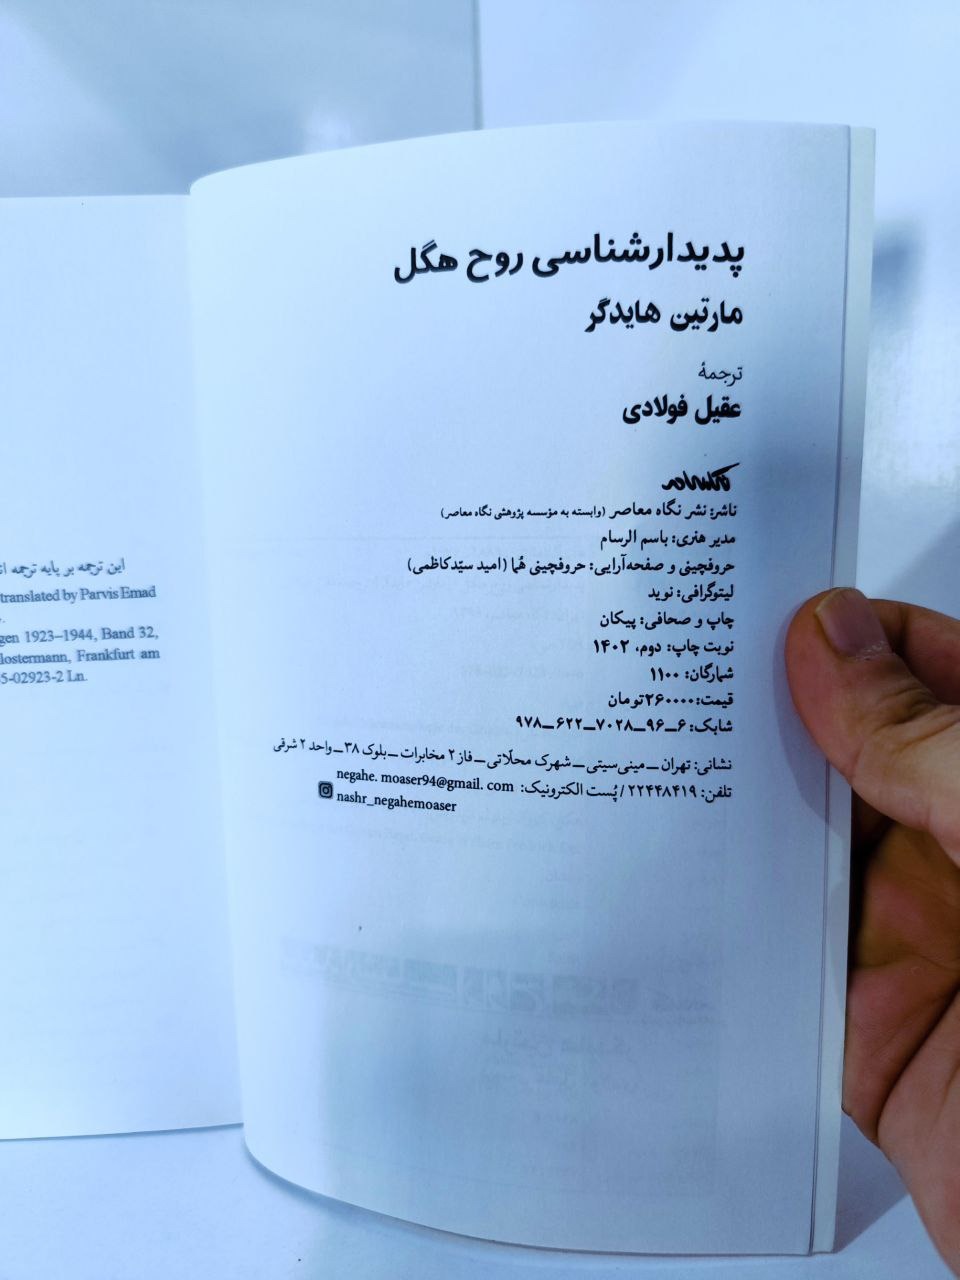 پدیدارشناسی روح هگل
مارتین هایدگر
ترجمهٔ
عقیل فولادی
ناشر: نشر نگاه معاصر (وابسته به مؤسسه پژوهشی نگاه معاصر)
مدیر هنری: باسم الرسام
حروفچینی و صفحه‌آرایی: حروفچینی هُما (امید سیّدکاظمی)
لیتوگرافی: نوید
چاپ و صحافی: پیکان
نوبت چاپ: دوم، ۱۴۰۲
شمارگان: ۱۱۰۰
قیمت: ۲۶۰۰۰۰تومان
شابک: ۶ــ۹۶ــ۷۰۲۸ــ۶۲۲ــ۹۷۸
نشانی: تهران ــ مینی‌سیتی ــ شهرک محلّاتی ــ فاز ۲ مخابرات ــ بلوک ۳۸ ــ واحد ۲ شرقی
تلفن: ۲۲۴۴۸۴۱۹ / پُست الکترونیک: negahe. moaser94@gmail. com
nashr_negahemoaser
این ترجمه بر پایه ترجمه
translated by Parvis Emad
gen 1923–1944, Band 32,
lostermann, Frankfurt am
5-02923-2 Ln.